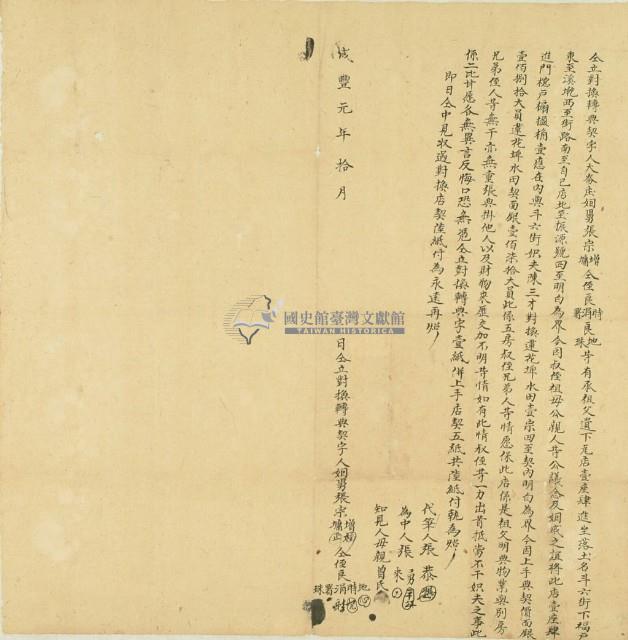 仝立對換轉典契字人大崙庄姻舅張宗增墉仝侄良時消署良地珠等有承祖父遺下瓦店壹座肆進坐落土名斗六街下福戶
東至溪墘西至街路南至自己店北至振源號四至明白為界今因叔侄祖母公親人等公議念及姻戚之誼將此店壹座肆
進門樘戶扇楹桷壹應在內典斗六街姻夫陳三才對換蓮花埤水田壹宗四至契內明白為界今因上手典契價面銀
壹佰捌拾大員蓮花埤水田契面銀壹佰柒拾大員此係五房叔侄兄弟人等情愿係此店係是祖父明典物業與別房
兄弟侄人等無干亦無重張典掛他人以及財物來歷交加不明等情如有此情叔侄等一力出首抵當不干姻夫之事此
係二比甘愿各無異言反悔口恐無凭仝立對換轉典字壹紙併上手店契五紙共陸紙付執為炤
即日仝中見收過對換店契陸紙付為永遠再炤
代筆人張恭
為中人張
知見人母親曾氏
咸豐元年拾月 日仝立對換轉典契字人姻舅張宗增墉仝侄良
國史館臺灣文獻館
TAIWAN HISTORICA